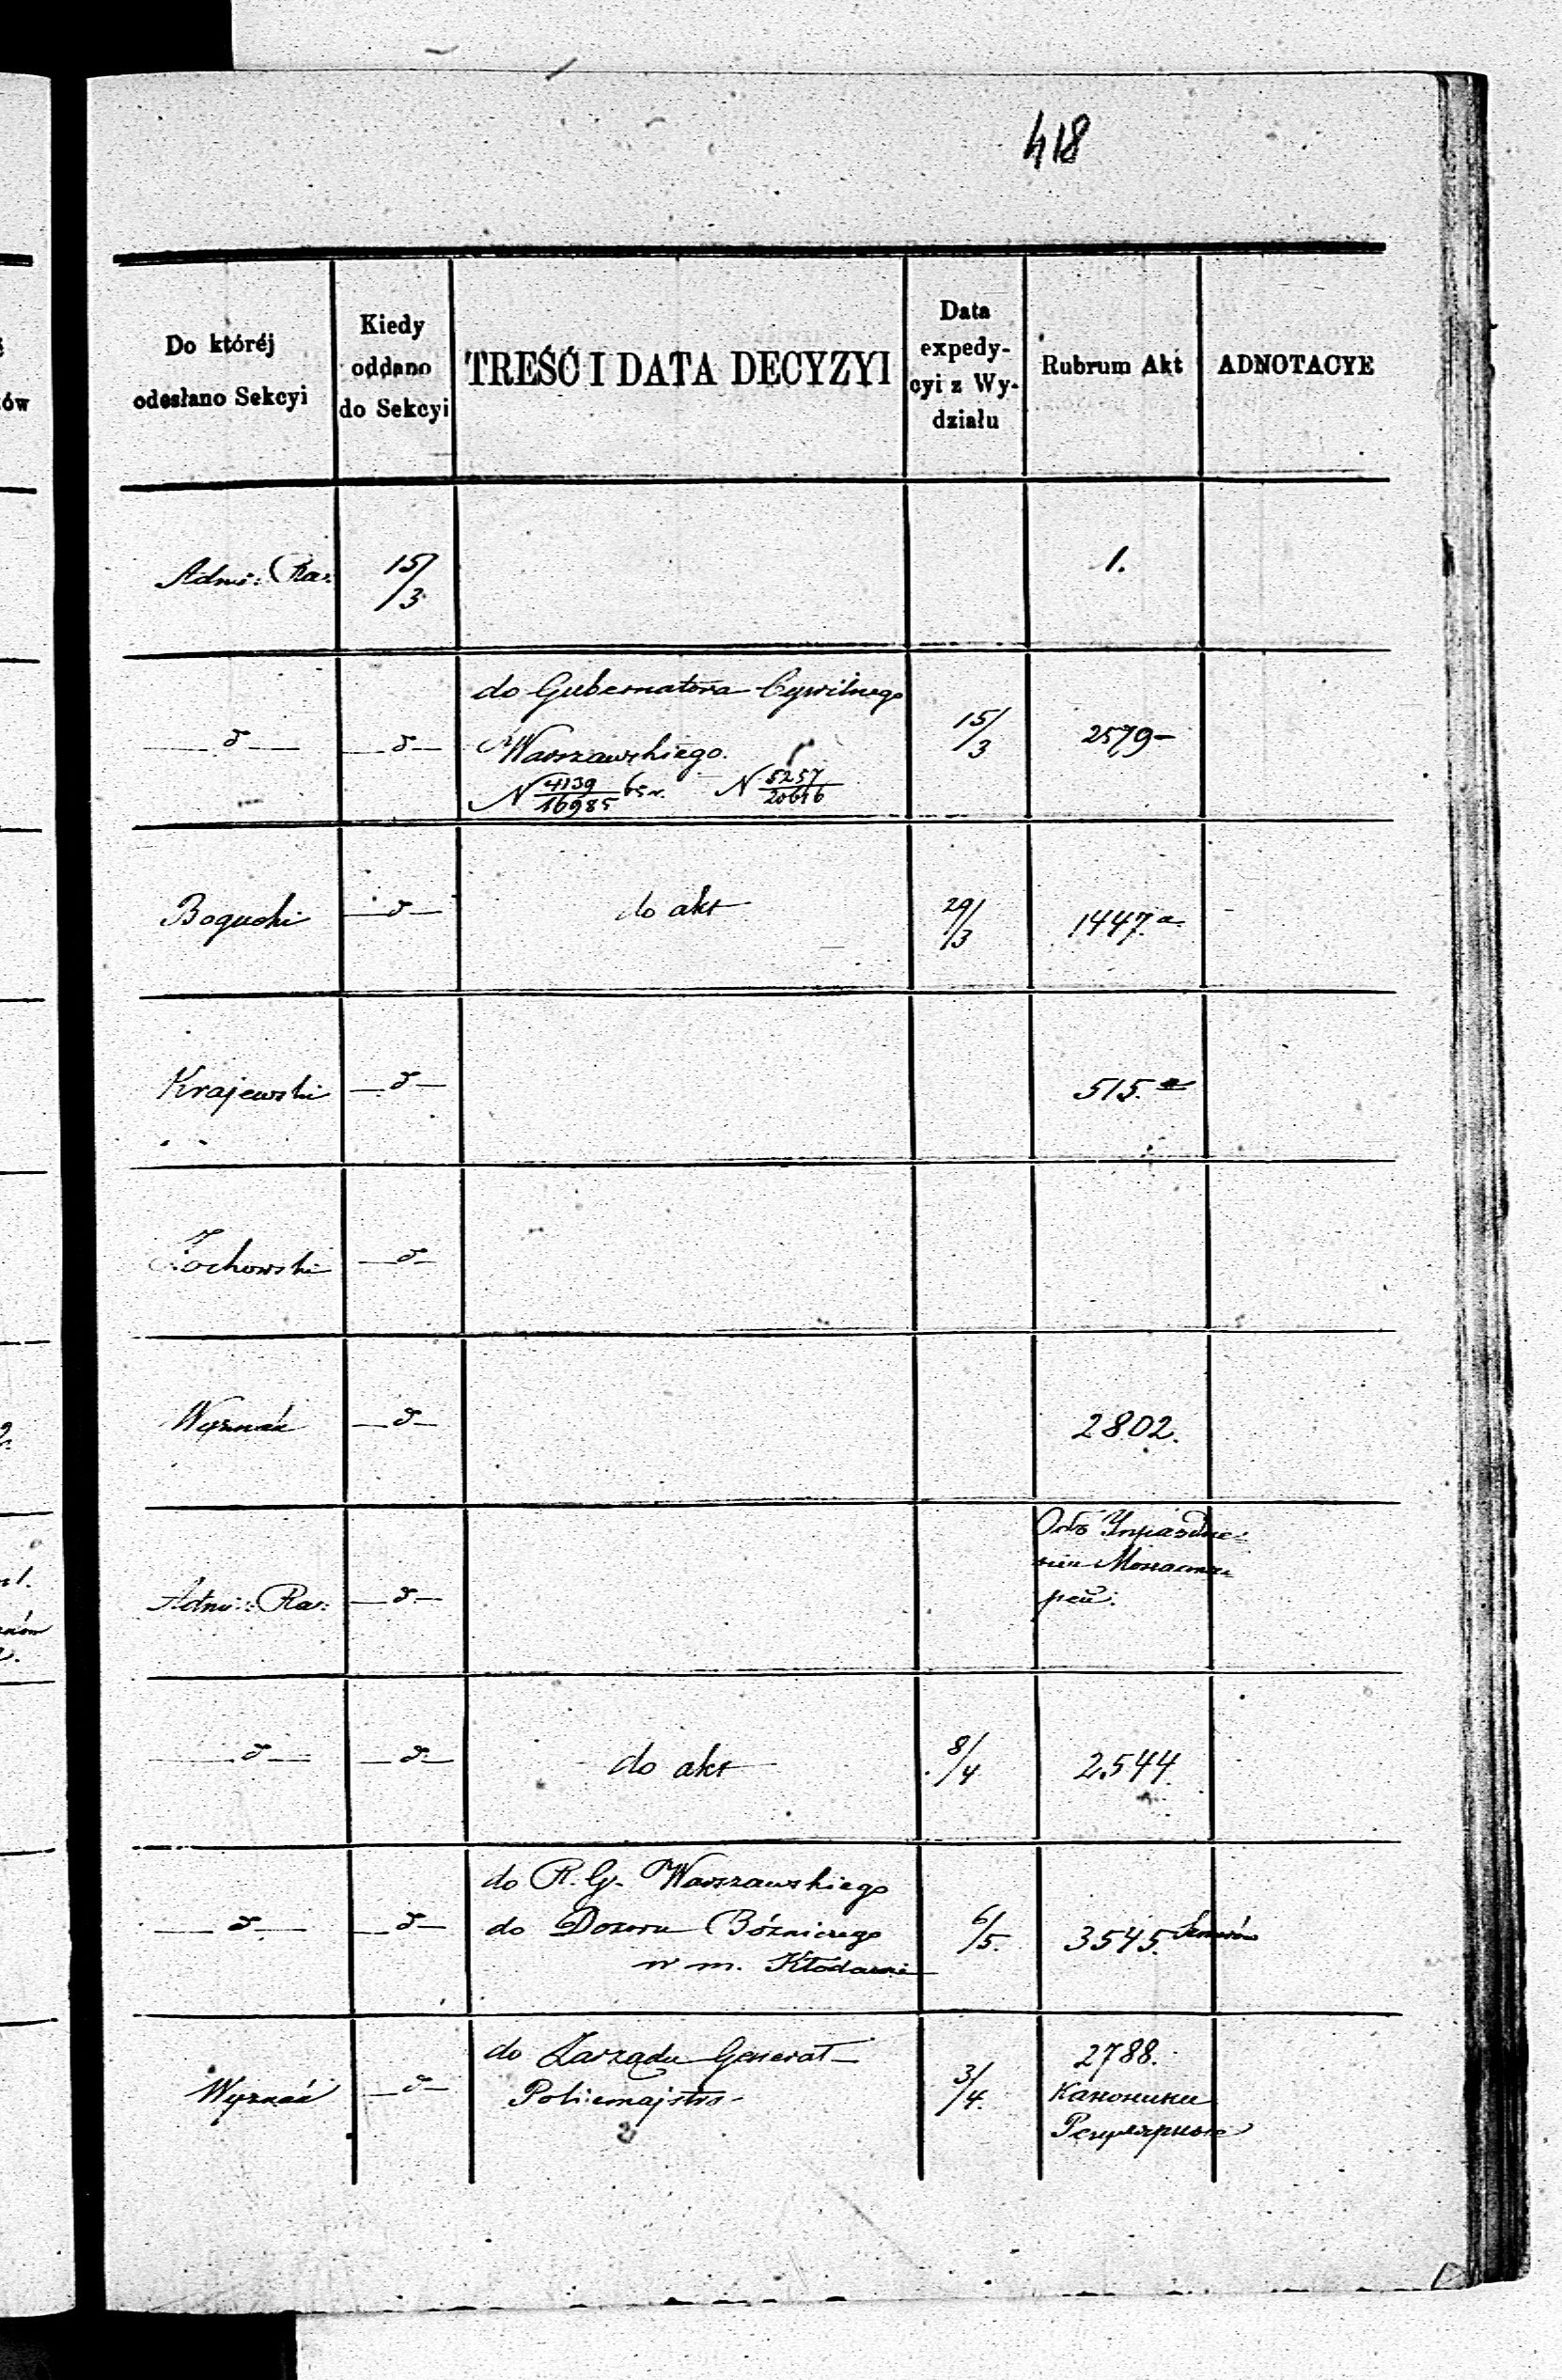 418
Do któréj
odesłano Sekcyi
Kiedy
oddano
do Sekcyi
TREŚĆ I DATA DECYZYI
Data
expedy-
cyi z Wy-
działu
Rubrum Akt
ADNOTACYE
Adm: Ra:
15/3
1.
do Gubernatora Cywilnego
Warszawskiego.
N 4139/16985 N 5257/20616
15/3
2579
Bogucki
do akt
29/3
1447.a
Krajewski
515.a
Żochowski
Wyznań
2802.
Adm: Ra:
Объ Упраздне-
нiи Монасты-
рей.
do akt
8/4
2544.
do R. G. Warszawskiego
do Dozoru Bóżniczego
w m. Kłodawie
6/5.
3545.
Wyznań
do Zarządu Generał
Policmajstra
3/4.
2788.
Каноники
Регулярные